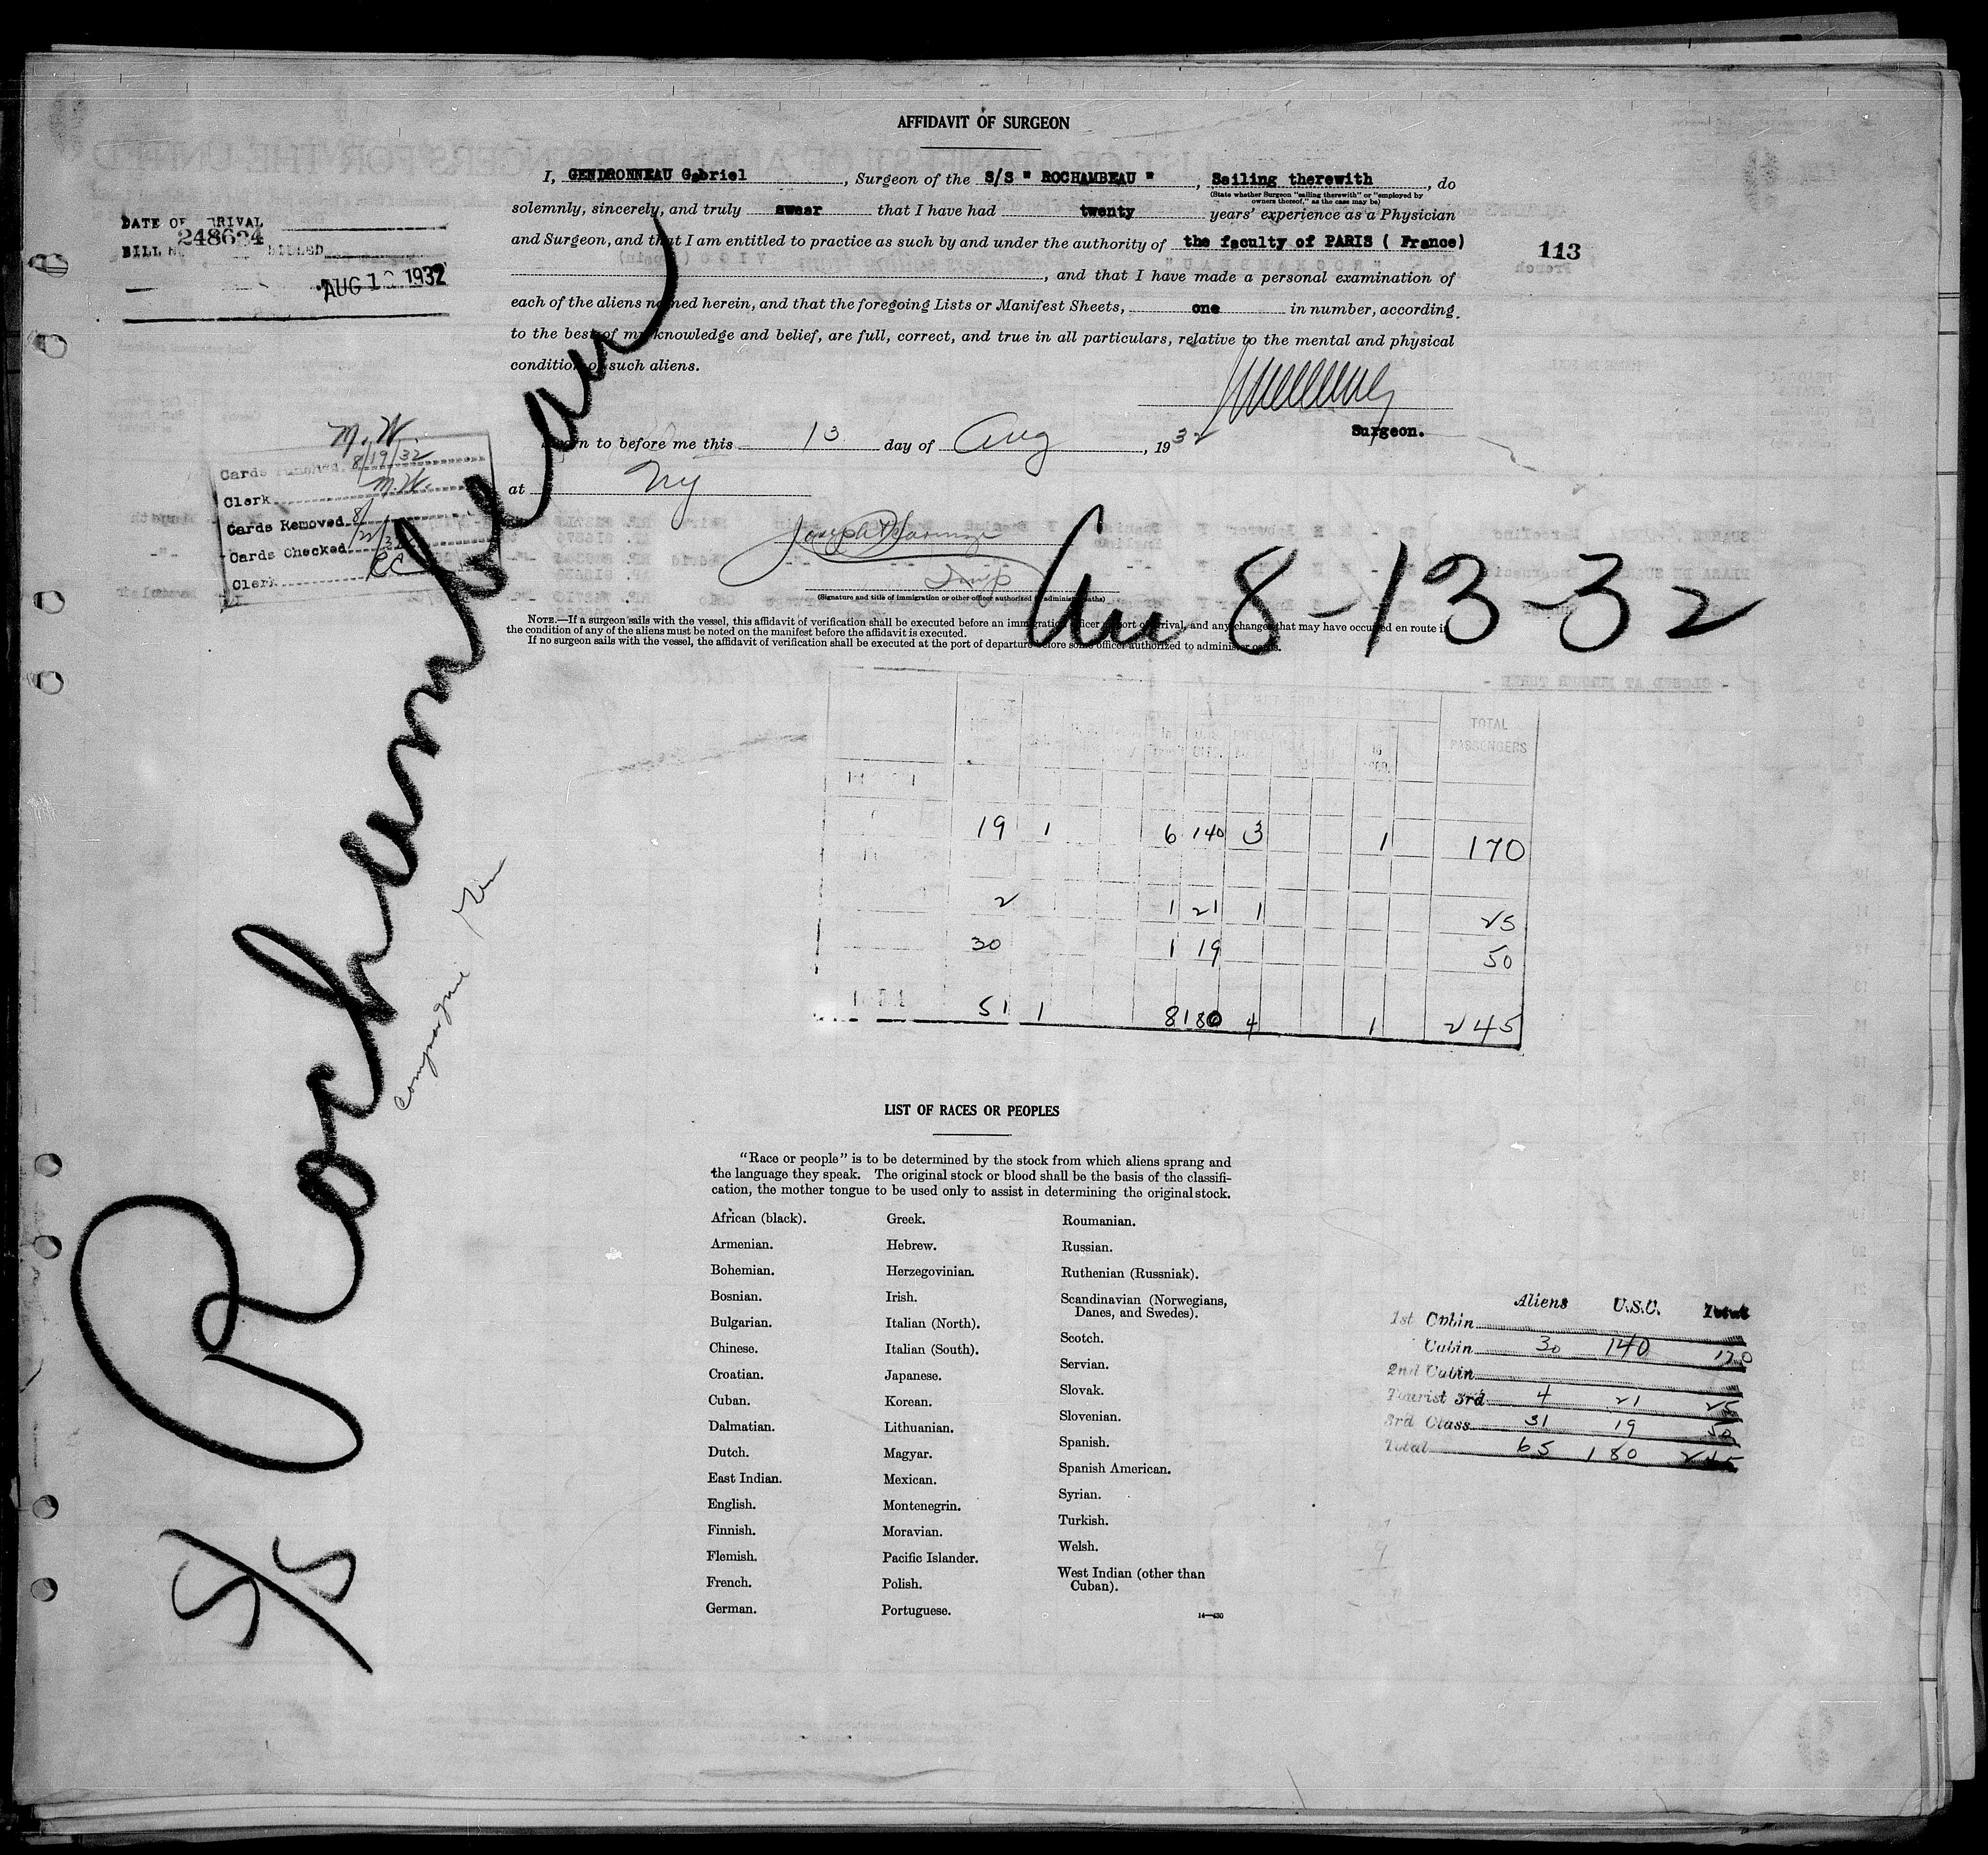 AFFIDAVIT OF SURGEON
I, GENDRONNEAU Gabriel, Surgeon of the S/S " ROCHAMBEAU ", Sailing therewith, do
(State whether Surgeon "sailing therewith" or "employed by
owners thereof," as the case may be)
solemnly, sincerely, and truly swear that I have had twenty years' experience as a Physician
and Surgeon, and that I am entitled to practice as such by and under the authority of the faculty of PARIS ( France)
, and that I have made a personal examination of
each of the aliens named herein, and that the foregoing Lists or Manifest Sheets, one in number, according
to the best of my knowledge and belief, are full, correct, and true in all particulars, relative to the mental and physical
condition of such aliens.
Surgeon.
Sworn to before me this 13 day of Aug, 1932
at NY
(Signature and title of immigration or other officer authorized to administer oaths)
NOTE.—If a surgeon sails with the vessel, this affidavit of verification shall be executed before an immigration officer at port of arrival, and any changes that may have occurred en route in
the condition of any of the aliens must be noted on the manifest before the affidavit is executed.
If no surgeon sails with the vessel, the affidavit of verification shall be executed at the port of departure before some officer authorized to administer oaths.
DATE OF ARRIVAL
248634
BILL BILLED
AUG 1 1932
113
M. W
Cards Punched 8/19/32
Clerk M.W.
Cards Removed 8/
Cards Checked 22/32
Clerk
S/S Rochambeau
Arr 8-13-32
TOTAL
PASSENGERS
19 1 6 140 3 1 170
2 1 21 1 25
30 1 19 50
51 1 8 180 4 1 245
LIST OF RACES OR PEOPLES
"Race or people" is to be determined by the stock from which aliens sprang and
the language they speak. The original stock or blood shall be the basis of the classifi-
cation, the mother tongue to be used only to assist in determining the original stock.
African (black).
Armenian.
Bohemian.
Bosnian.
Bulgarian.
Chinese.
Croatian.
Cuban.
Dalmatian.
Dutch.
East Indian.
English.
Finnish.
Flemish.
French.
German.
Greek.
Hebrew.
Herzegovinian.
Irish.
Italian (North).
Italian (South).
Japanese.
Korean.
Lithuanian.
Magyar.
Mexican.
Montenegrin.
Moravian.
Pacific Islander.
Polish.
Portuguese.
Roumanian.
Russian.
Ruthenian (Russniak).
Scandinavian (Norwegians,
Danes, and Swedes).
Scotch.
Servian.
Slovak.
Slovenian.
Spanish.
Spanish American.
Syrian.
Turkish.
Welsh.
West Indian (other than
Cuban).
14—430
Aliens U.S.C. Total
1st Cabin
Cabin 30 140 170
2nd Cabin
Tourist 3rd 4 21 25
3rd Class 31 19 50
Total 65 180 245